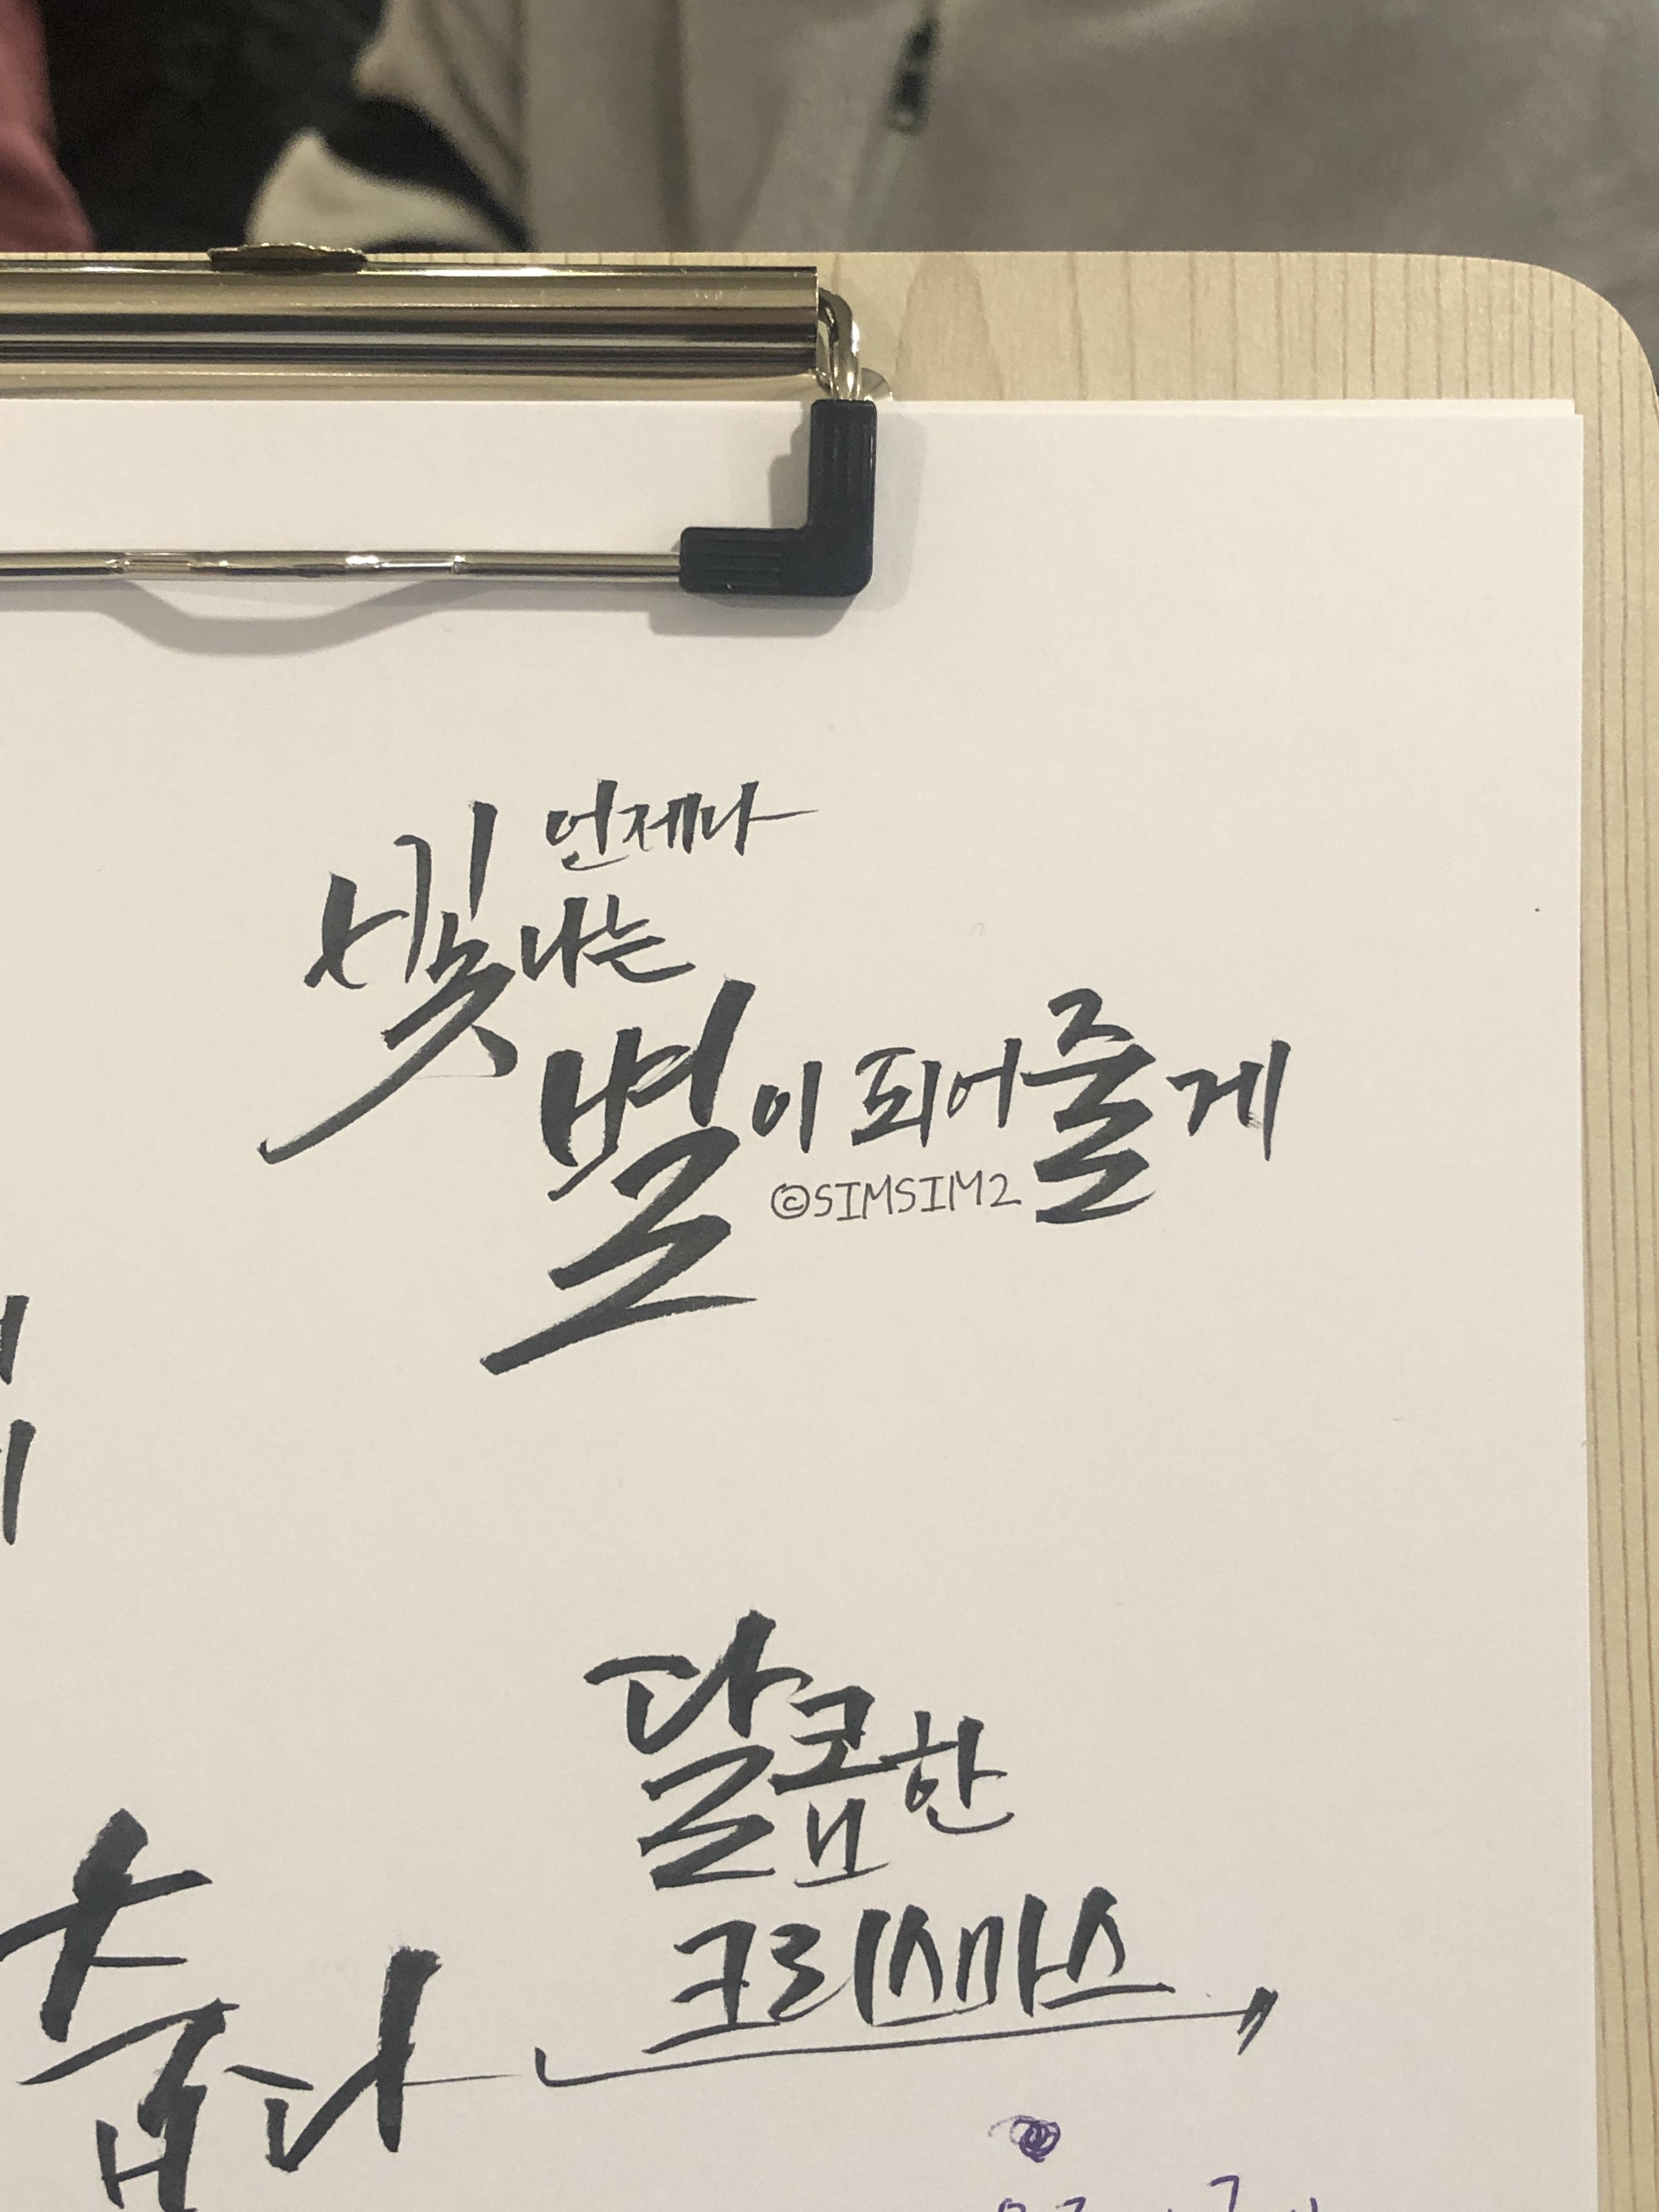 언제나
빛나는
별이 되어줄게
©SIMSIM2
달콤한
크리스마스
춥다